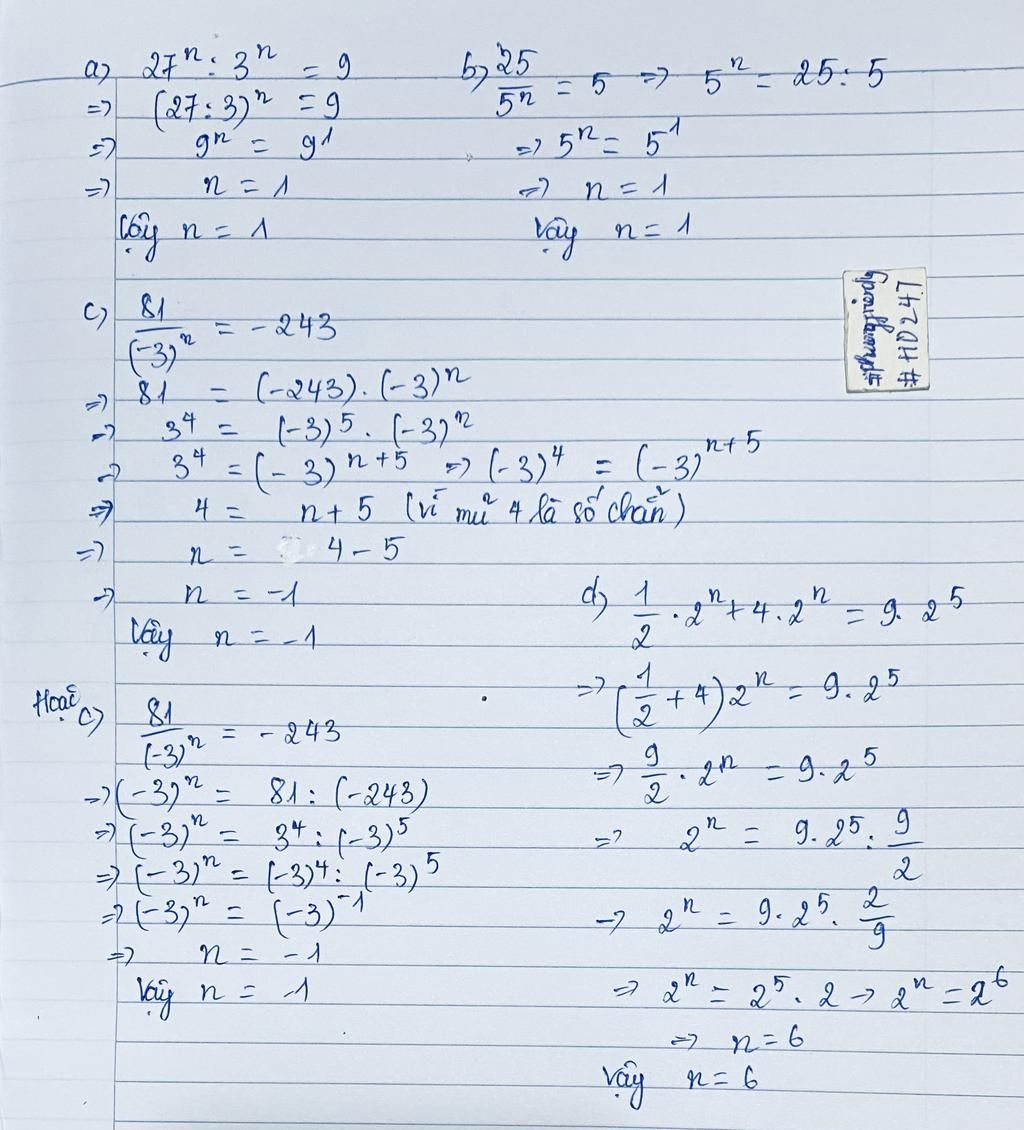 a) 27ⁿ : 3ⁿ = 9
=> (27 : 3)ⁿ = 9
=> 9ⁿ = 9¹
=> n = 1
Vậy n = 1
b) 25/5ⁿ = 5 => 5ⁿ = 25 : 5
=> 5ⁿ = 5¹
=> n = 1
Vậy n = 1
# HD247
c) 81/(-3)ⁿ = -243
=> 81 = (-243) . (-3)ⁿ
=> 3⁴ = (-3)⁵ . (-3)ⁿ
=> 3⁴ = (-3)ⁿ⁺⁵ => (-3)⁴ = (-3)ⁿ⁺⁵
=> 4 = n + 5 (vì mũ 4 là số chẵn)
=> n = 4 - 5
=> n = -1
Vậy n = -1
Hoặc c) 81/(-3)ⁿ = -243
=> (-3)ⁿ = 81 : (-243)
=> (-3)ⁿ = 3⁴ : (-3)⁵
=> (-3)ⁿ = (-3)⁴ : (-3)⁵
=> (-3)ⁿ = (-3)⁻¹
=> n = -1
Vậy n = -1
d) 1/2 . 2ⁿ + 4 . 2ⁿ = 9 . 2⁵
=> (1/2 + 4) 2ⁿ = 9 . 2⁵
=> 9/2 . 2ⁿ = 9 . 2⁵
=> 2ⁿ = 9 . 2⁵ : 9/2
=> 2ⁿ = 9 . 2⁵ . 2/9
=> 2ⁿ = 2⁵ . 2 → 2ⁿ = 2⁶
=> n = 6
Vậy n = 6